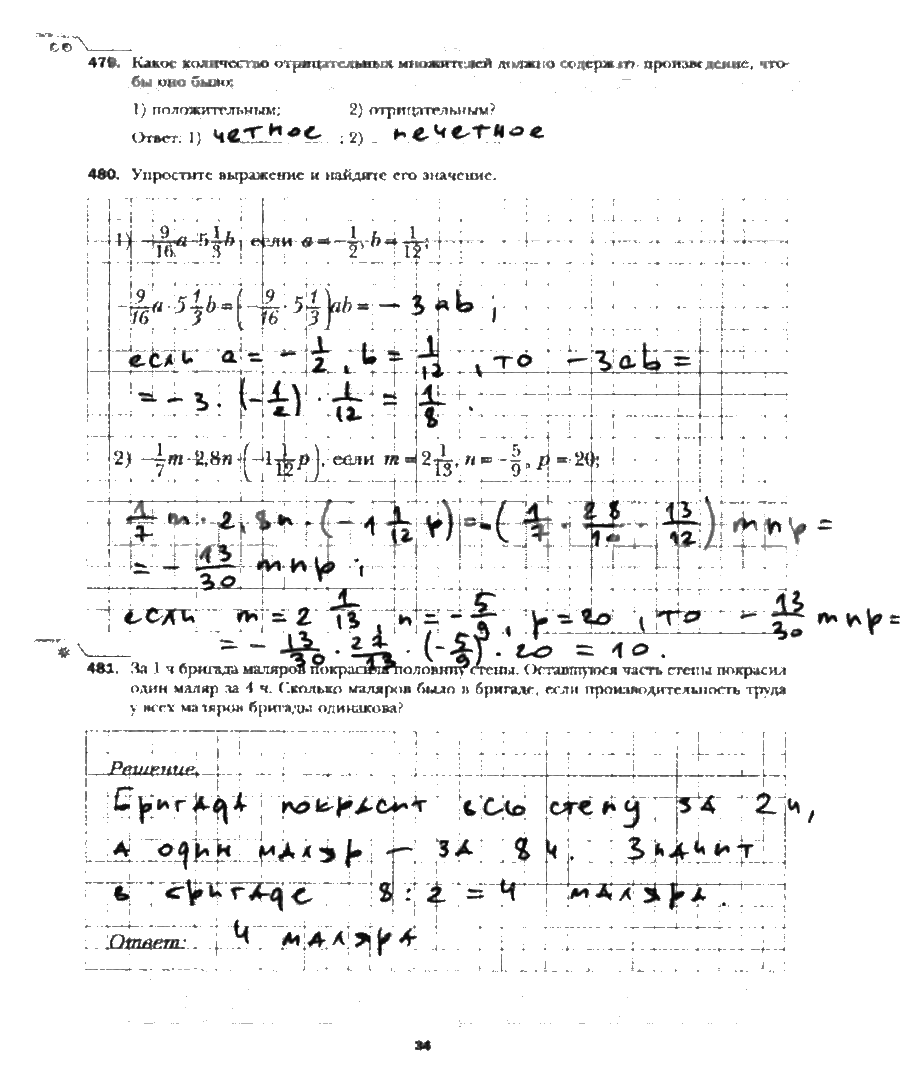 479. Какое количество отрицательных множителей должно содержать произведение, что-
бы оно было:
1) положительным; 2) отрицательным?
Ответ: 1) четное ; 2) нечетное
480. Упростите выражение и найдите его значение.
1) -9/16 a · 5 1/3 b, если a = -1/2, b = 1/12;
-9/16 a · 5 1/3 b = (-9/16 · 5 1/3) ab = - 3 ab ;
если a = - 1/2 , b = 1/12 , то - 3 ab =
= - 3 · (-1/2) · 1/12 = 1/8 .
2) -1/7 m · 2,8n · (-1 1/12 p), если m = 2 1/13, n = -5/9, p = 20;
1/7 m · 2,8n · (- 1 1/12 p) = - (1/7 · 28/10 · 13/12) mnp =
= - 13/30 mnp ;
если m = 2 1/13 , n = - 5/9 , p = 20 , то - 13/30 mnp =
= - 13/30 · 27/13 · (-5/9) · 20 = 10 .
481. За 1 ч бригада маляров покрасила половину стены. Оставшуюся часть стены покрасил
один маляр за 4 ч. Сколько маляров было в бригаде, если производительность труда
у всех маляров бригады одинакова?
Решение.
Бригада покрасит всю стену за 2 ч,
а один маляр - за 8 ч. Значит
в бригаде 8 : 2 = 4 маляра.
Ответ: 4 маляра
34